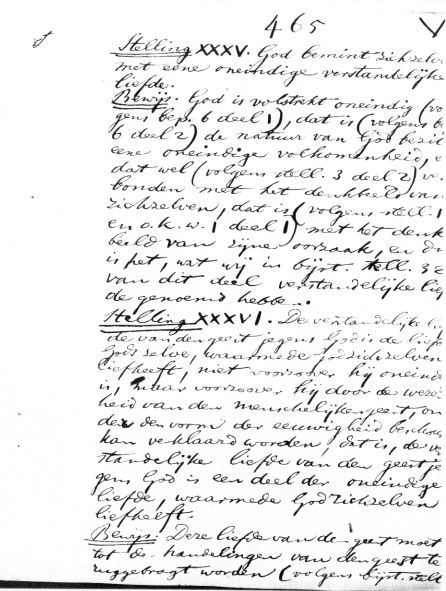 465 V
Stelling XXXV. God bemint zichzelven
met eene oneindige verstandelijke
liefde.
Bewijs. God is volstrekt oneindig (vol
gens bep. 6 deel 1), dat is (volgens be
6 deel 2) de natuur van God bezit
eene oneindige volkomenheid, e
dat wel (volgens stell. 3 deel 2) ver
bonden met het denkbeeld van
zichzelven, dat is (volgens stell. 1
en o.k.w. 1 deel 1) met het denk
beeld van zijne oorzaak, en di
is het, wat wij in bijst. stell. 32
van dit deel verstandelijke lief
de genoemd hebben.
Stelling XXXVI. De verstandelijke lie
de van den geest jegens God is de liefd
Gods zelve, waarmede God zichzelven
liefheeft, niet voorzoover hij oneindi
is, maar voorzoover hij door de weze
heid van den menschelijken geest, on
der den vorm der eeuwigheid beschouw
kan verklaard worden, dat is, de ver
standelijke liefde van den geest je
gens God is een deel der oneindige
liefde, waarmede God zichzelven
liefheeft.
Bewijs. Deze liefde van den geest moet
tot de handelingen van den geest te
ruggebragt worden (volgens bijst. stell